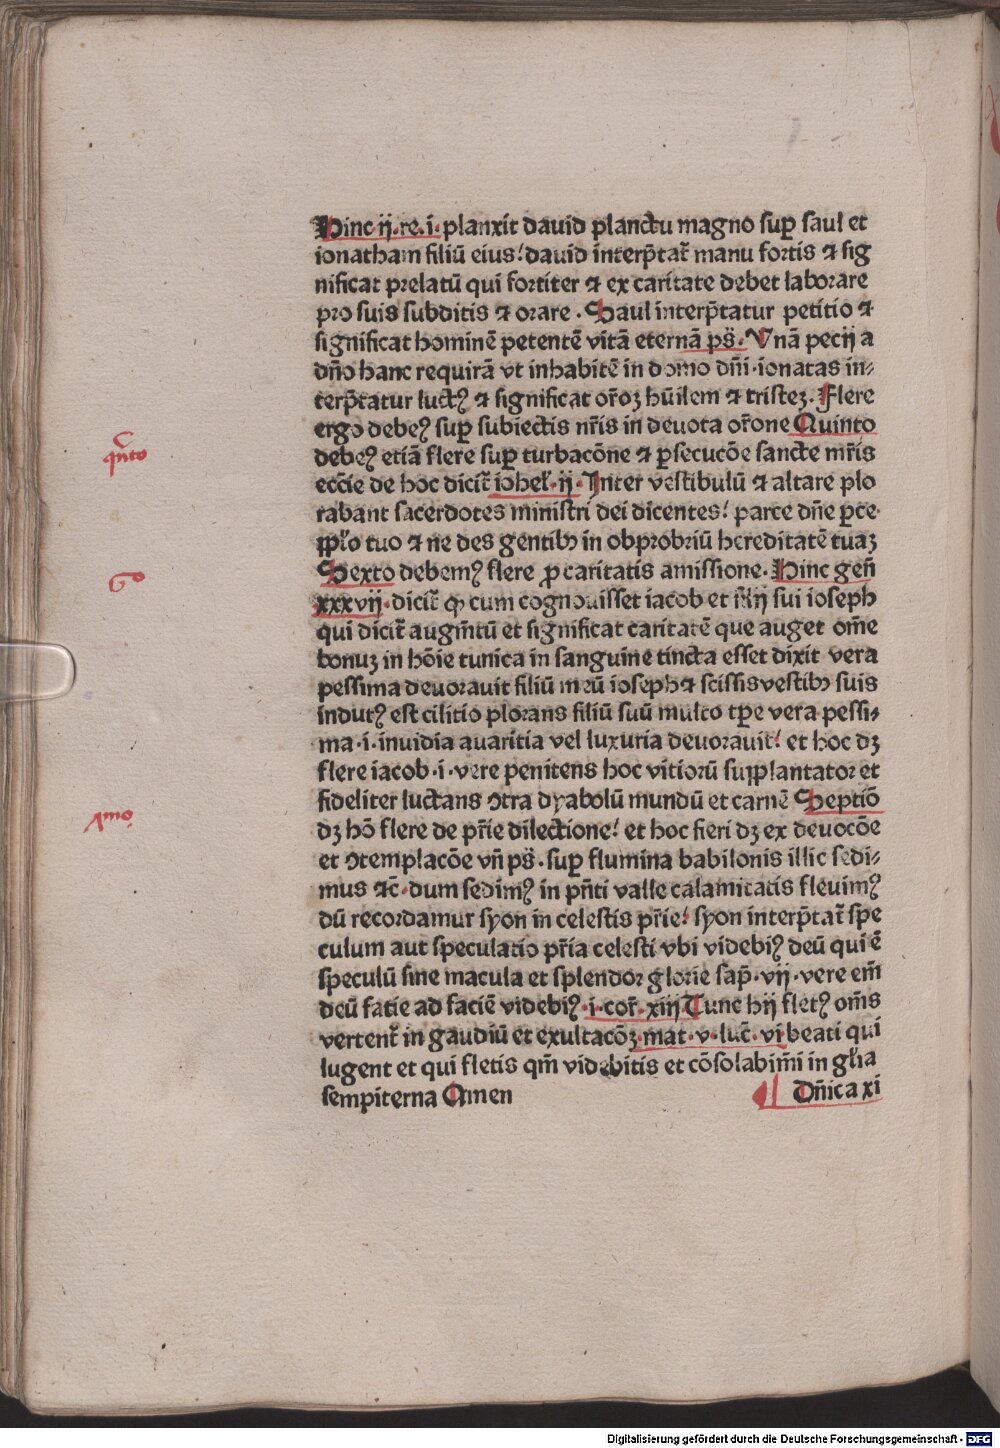 Hinc ij. re. i. planxit dauid planctu magno suꝑ saul et
ionatham filiū eius! dauid interp̄tat̄ manu fortis ⁊ sig
nificat prelatū qui fortiter ⁊ ex caritate debet laborare
pro suis subditis ⁊ orare. Saul interp̄tatur petitio ⁊
significat hominē petentē vitā eternā ps̄. Vnā pecij a
dn̄o hanc requirā vt inhabitē in domo dn̄i. ionatas in⸗
terp̄tatur luctꝰ ⁊ significat or̄oꝫ hūilem ⁊ tristeꝫ. Flere
ergo debeꝰ suꝑ subiectis nr̄is in deuota or̄one Quinto
debeꝰ etiā flere suꝑ turbacōne ⁊ ꝑsecucōe sancte mr̄is
ecc̄ie de hoc dicit̄ iohel̄. ij. Inter vestibulū ⁊ altare plo
rabant sacerdotes ministri dei dicentes! parce dn̄e ꝑce.
ppl̄o tuo ⁊ ne des gentibꝫ in obprobriū hereditatē tuaꝫ
Sexto debemꝰ flere ꝓ caritatis amissione. Hinc gen̄
xxxvij. dicit̄ ꝙ cum cognouisset iacob et filij sui ioseph
qui dicit̄ augm̄tū et significat caritatē que auget om̄e
bonuꝫ in hōie tunica in sanguine tincta esset dixit vera
pessima deuorauit filiū meū ioseph ⁊ scissis vestibꝫ suis
indutꝰ est cilitio plorans filiū suū multo tp̄e vera pessi⸗
ma. i. inuidia auaritia vel luxuria deuorauit! et hoc dꝫ
flere iacob. i. vere penitens hoc vitiorū supplantator et
fideliter luctans ↄtra dyabolū mundū et carnē Septiō
dꝫ hō flere de pr̄ie dilectione! et hoc fieri dꝫ ex deuocōe
et ↄtemplacōe vn̄ ps̄. suꝑ flumina babilonis illic sedi⸗
mus ⁊c̄. dum sedimꝰ in pn̄ti valle calamitatis fleuimꝰ
dū recordamur syon in celestis pr̄ie! syon interp̄tat̄ spe
culum aut speculatio pr̄ia celesti vbi videbiꝰ deū qui ē
speculū sine macula et splendor glorie sap̄. vij. vere em̄
deū fatie ad faciē videbiꝰ. i. cor̄. xiij Tunc hij fletꝰ om̄s
vertent̄ in gaudiū et exultacōꝫ. mat. v. luc̄. vi beati qui
lugent et qui fletis qm̄ videbitis et cōsolabim̄i in gl̄ia
sempiterna Amen
Dn̄ica xi
qn̄to
6o
7mo